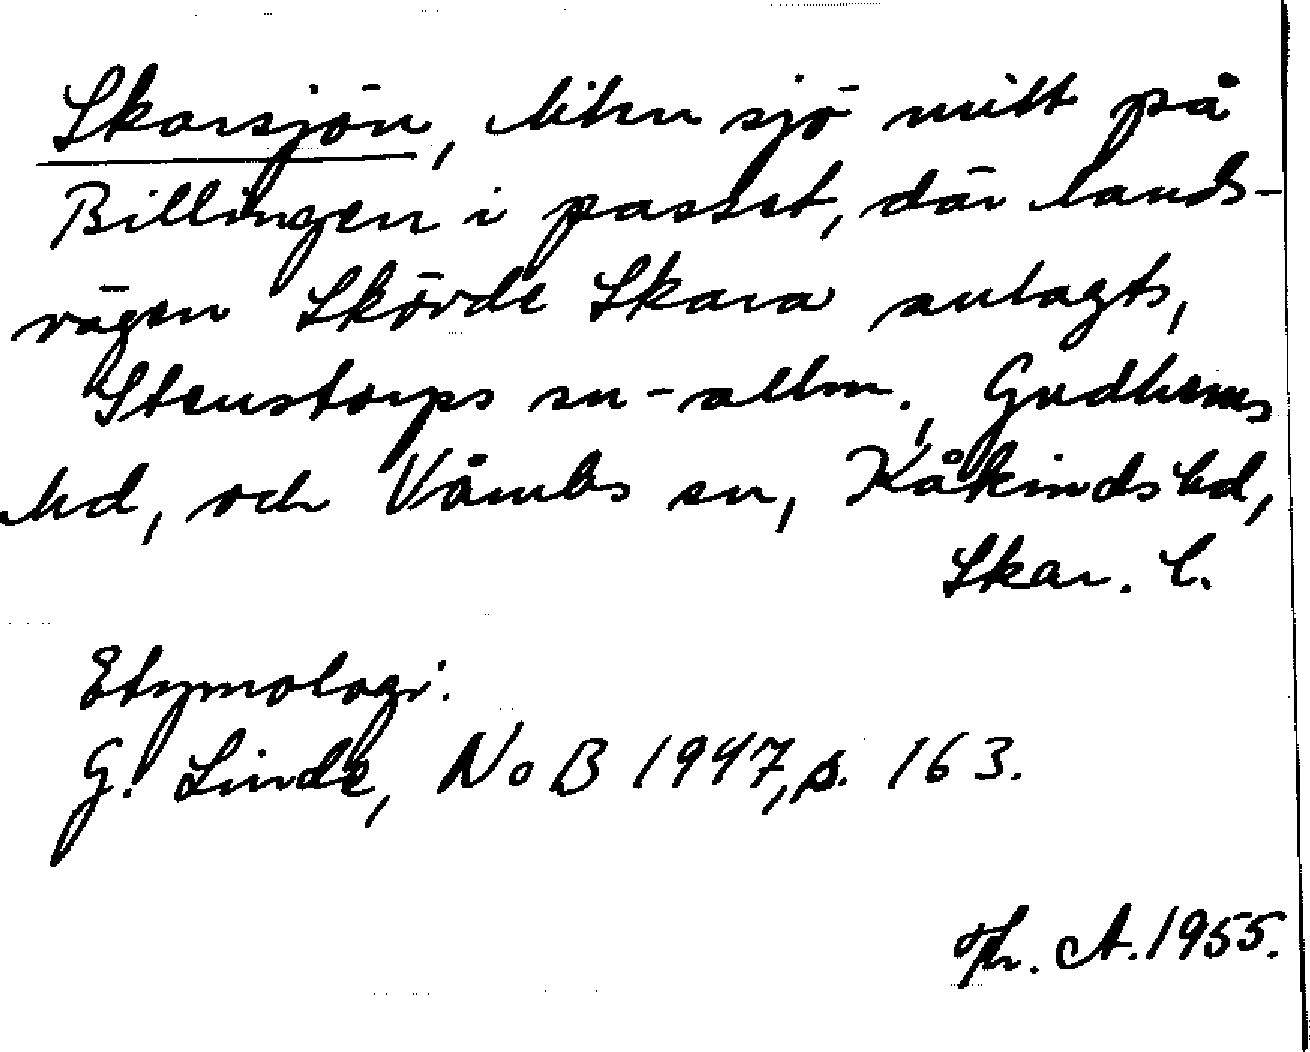 Skarsjön, liten sjö mitt på
Billingen i passet, där lands-
vägen Skövde Skara anlagts,
Stenstorps sn-allm., Gudhems
hd, och Våmbs sn, Kåkinds hd,
Skar. l.
Etymologi:
G. Linde, NoB 1947, s. 163.
Th. A. 1955.